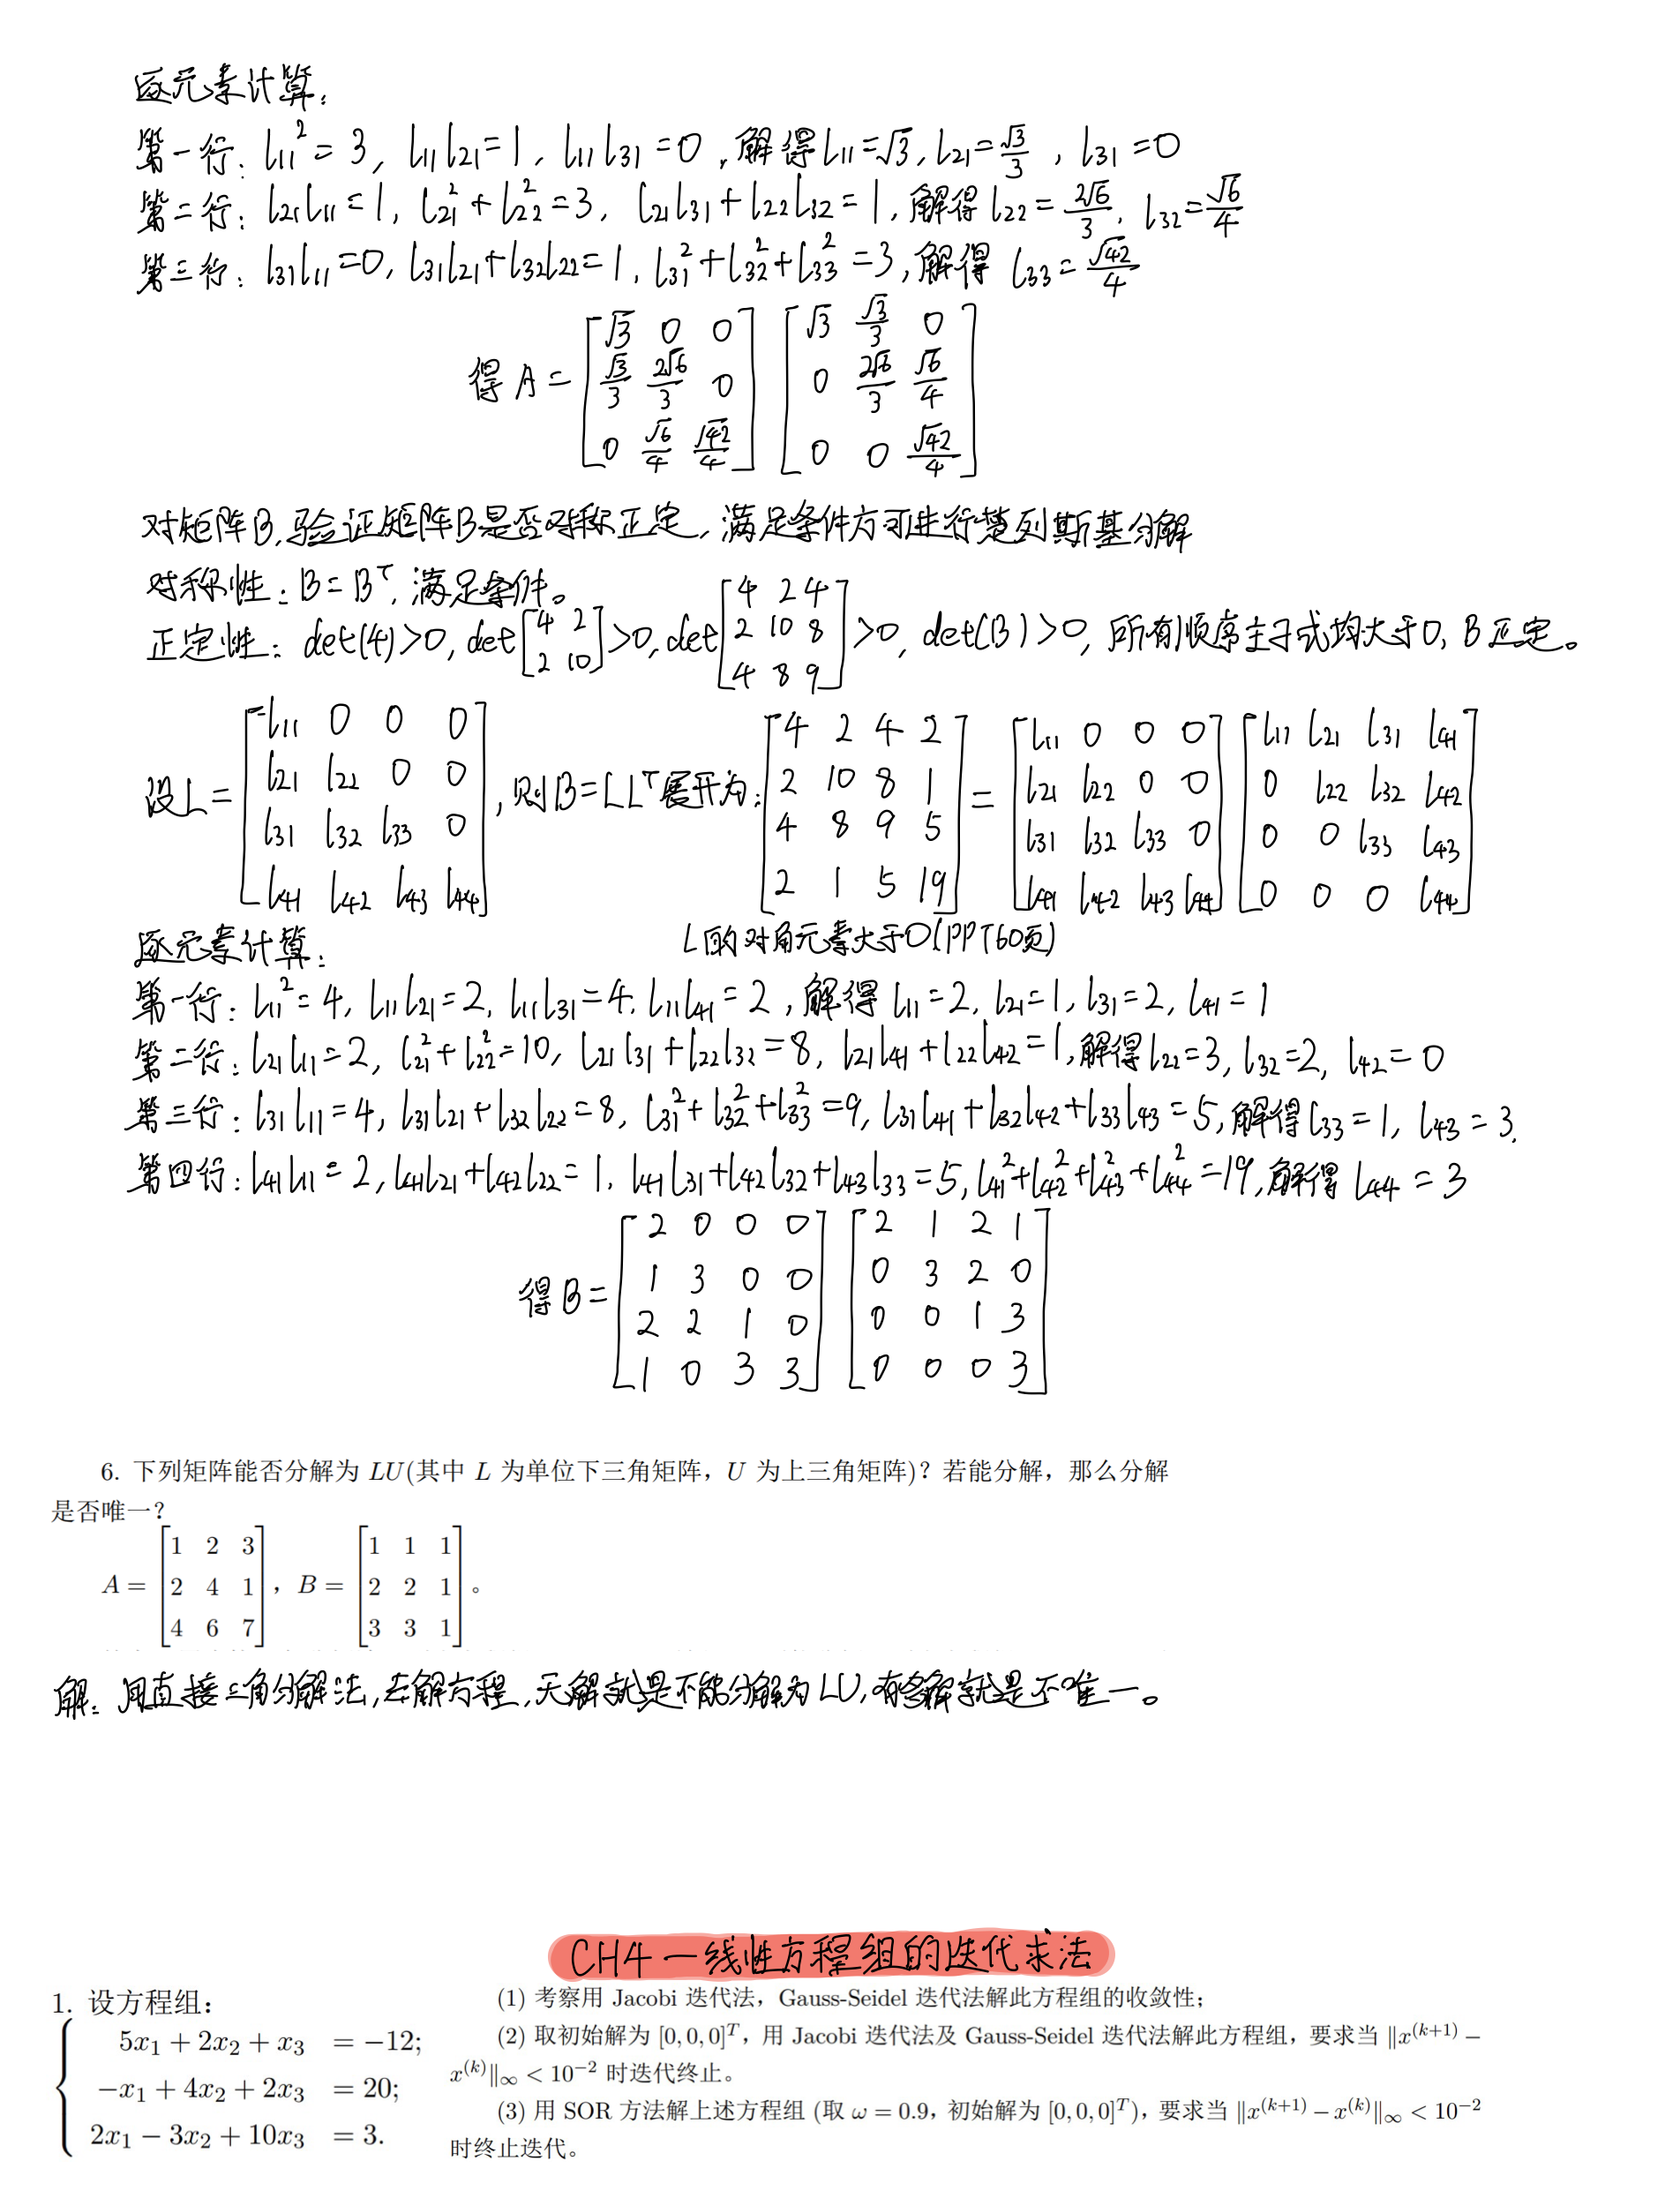 逐元素计算:
第一行: l₁₁² = 3, l₁₁l₂₁ = 1, l₁₁l₃₁ = 0, 解得 l₁₁ = √3, l₂₁ = √3/3, l₃₁ = 0
第二行: l₂₁l₁₁ = 1, l₂₁² + l₂₂² = 3, l₂₁l₃₁ + l₂₂l₃₂ = 1, 解得 l₂₂ = 2√6/3, l₃₂ = √6/4
第三行: l₃₁l₁₁ = 0, l₃₁l₂₁ + l₃₂l₂₂ = 1, l₃₁² + l₃₂² + l₃₃² = 3, 解得 l₃₃ = √42/4
得 A = [√3 0 0; √3/3 2√6/3 0; 0 √6/4 √42/4] [√3 √3/3 0; 0 2√6/3 √6/4; 0 0 √42/4]
对矩阵B, 验证矩阵B是否对称正定, 满足条件方可进行楚列斯基分解
对称性: B = Bᵀ, 满足条件。
正定性: det(4) > 0, det[4 2; 2 10] > 0, det[4 2 4; 2 10 8; 4 8 9] > 0, det(B) > 0, 所有顺序主子式均大于0, B正定。
设 L = [l₁₁ 0 0 0; l₂₁ l₂₂ 0 0; l₃₁ l₃₂ l₃₃ 0; l₄₁ l₄₂ l₄₃ l₄₄], 则 B = LLᵀ 展开为: [4 2 4 2; 2 10 8 1; 4 8 9 5; 2 1 5 19] = [l₁₁ 0 0 0; l₂₁ l₂₂ 0 0; l₃₁ l₃₂ l₃₃ 0; l₄₁ l₄₂ l₄₃ l₄₄] [l₁₁ l₂₁ l₃₁ l₄₁; 0 l₂₂ l₃₂ l₄₂; 0 0 l₃₃ l₄₃; 0 0 0 l₄₄]
逐元素计算: L的对角元素大于0(PPT60页)
第一行: l₁₁² = 4, l₁₁l₂₁ = 2, l₁₁l₃₁ = 4, l₁₁l₄₁ = 2, 解得 l₁₁ = 2, l₂₁ = 1, l₃₁ = 2, l₄₁ = 1
第二行: l₂₁l₁₁ = 2, l₂₁² + l₂₂² = 10, l₂₁l₃₁ + l₂₂l₃₂ = 8, l₂₁l₄₁ + l₂₂l₄₂ = 1, 解得 l₂₂ = 3, l₃₂ = 2, l₄₂ = 0
第三行: l₃₁l₁₁ = 4, l₃₁l₂₁ + l₃₂l₂₂ = 8, l₃₁² + l₃₂² + l₃₃² = 9, l₃₁l₄₁ + l₃₂l₄₂ + l₃₃l₄₃ = 5, 解得 l₃₃ = 1, l₄₃ = 3.
第四行: l₄₁l₁₁ = 2, l₄₁l₂₁ + l₄₂l₂₂ = 1, l₄₁l₃₁ + l₄₂l₃₂ + l₄₃l₃₃ = 5, l₄₁² + l₄₂² + l₄₃² + l₄₄² = 19, 解得 l₄₄ = 3
得 B = [2 0 0 0; 1 3 0 0; 2 2 1 0; 1 0 3 3] [2 1 2 1; 0 3 2 0; 0 0 1 3; 0 0 0 3]
6. 下列矩阵能否分解为 LU(其中 L 为单位下三角矩阵，U 为上三角矩阵)？若能分解，那么分解
是否唯一？
A = [1 2 3; 2 4 1; 4 6 7]，B = [1 1 1; 2 2 1; 3 3 1]。
解: 用直接三角分解法, 去解方程, 无解就是不能分解为LU, 有多解就是不唯一。
CH4 — 线性方程组的迭代求法
1. 设方程组：
5x₁ + 2x₂ + x₃ = −12;
−x₁ + 4x₂ + 2x₃ = 20;
2x₁ − 3x₂ + 10x₃ = 3.
(1) 考察用 Jacobi 迭代法，Gauss-Seidel 迭代法解此方程组的收敛性；
(2) 取初始解为 [0, 0, 0]ᵀ，用 Jacobi 迭代法及 Gauss-Seidel 迭代法解此方程组，要求当 ‖x⁽ᵏ⁺¹⁾ −
x⁽ᵏ⁾‖∞ < 10⁻² 时迭代终止。
(3) 用 SOR 方法解上述方程组 (取 ω = 0.9，初始解为 [0, 0, 0]ᵀ)，要求当 ‖x⁽ᵏ⁺¹⁾ − x⁽ᵏ⁾‖∞ < 10⁻²
时终止迭代。